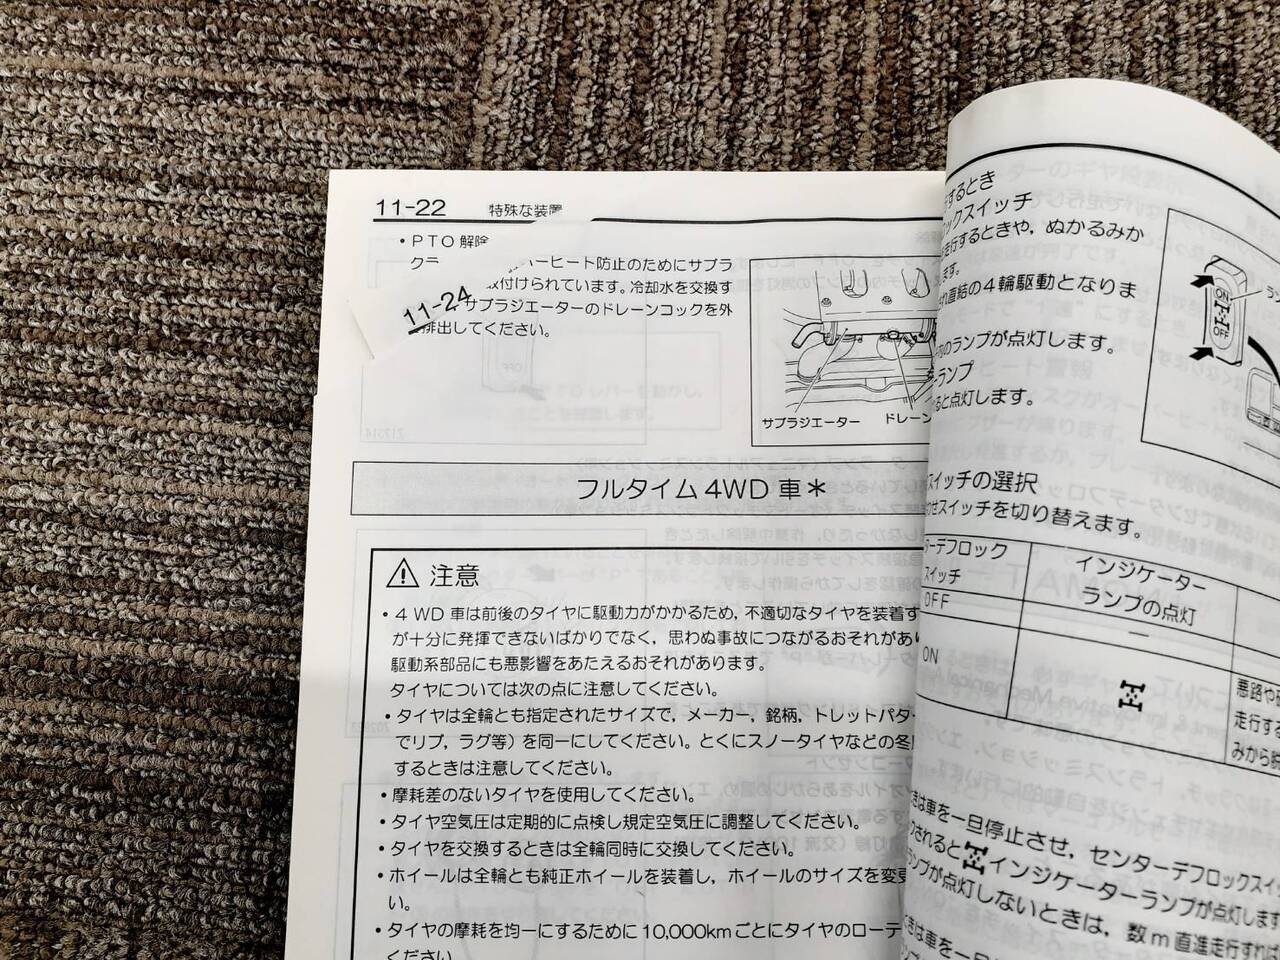 11-22 特殊な装置
・PTO解除
クラ
ーヒート防止のためにサブラ
付けられています。冷却水を交換す
11-24
サブラジエーターのドレーンコックを外
排出してください。
サブラジエーター ドレーン
フルタイム4WD車*
注意
・4WD車は前後のタイヤに駆動力がかかるため,不適切なタイヤを装着す
が十分に発揮できないばかりでなく,思わぬ事故につながるおそれがあり
駆動系部品にも悪影響をあたえるおそれがあります。
タイヤについては次の点に注意してください。
・タイヤは全輪とも指定されたサイズで,メーカー,銘柄,トレッドパター
でリブ,ラグ等)を同一にしてください。とくにスノータイヤなどの冬
するときは注意してください。
・摩耗差のないタイヤを使用してください。
・タイヤ空気圧は定期的に点検し規定空気圧に調整してください。
・タイヤを交換するときは全輪同時に交換してください。
・ホイールは全輪とも純正ホイールを装着し,ホイールのサイズを変更
い。
・タイヤの摩耗を均一にするために10,000kmごとにタイヤのローテ
ください。
するとき
ックスイッチ
走行するときや,ぬかるみか
ます。
直結の4輪駆動となりま
のランプが点灯します。
ーランプ
ると点灯します。
ON
OFF
スイッチの選択
スイッチを切り替えます。
ターデフロック
スイッチ
インジケーター
ランプの点灯
OFF
—
ON
悪路や
走行する
みから脱
きは車を一旦停止させ,センターデフロックスイ
されると インジケーターランプが点灯します
ランプが点灯しないときは,数m直進走行すれば
きは車を一旦停止